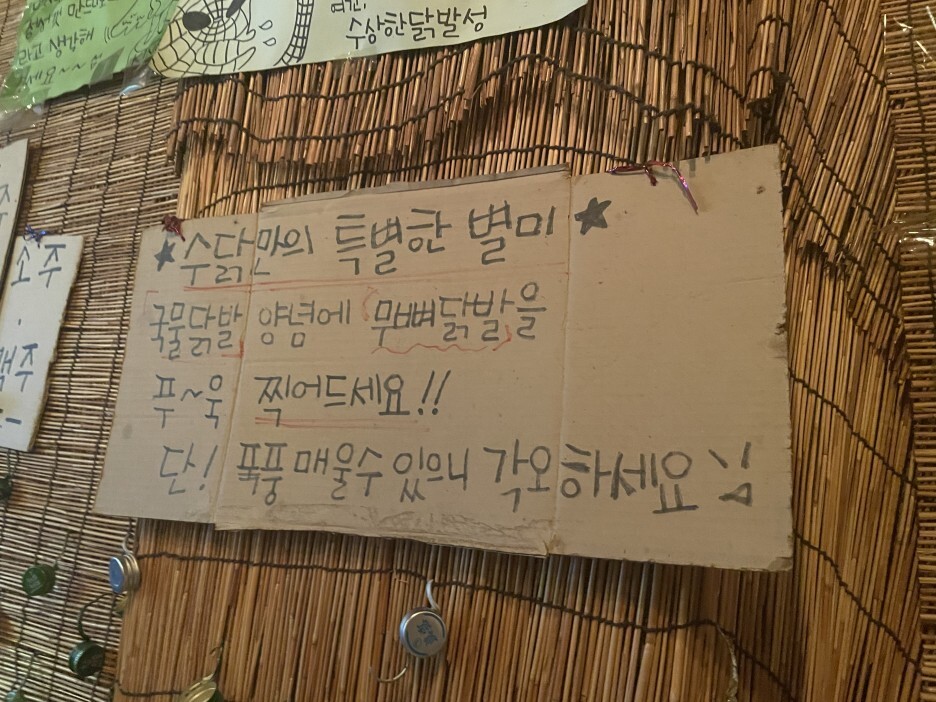 라고 생각해
세요~~
여긴,
수상한닭발성
소주
맥주
★수닭만의 특별한 별미★
국물닭발 양념에 무뼈닭발을
푸~욱 찍어드세요!!
단! 폭풍매울수 있으니 각오하세요